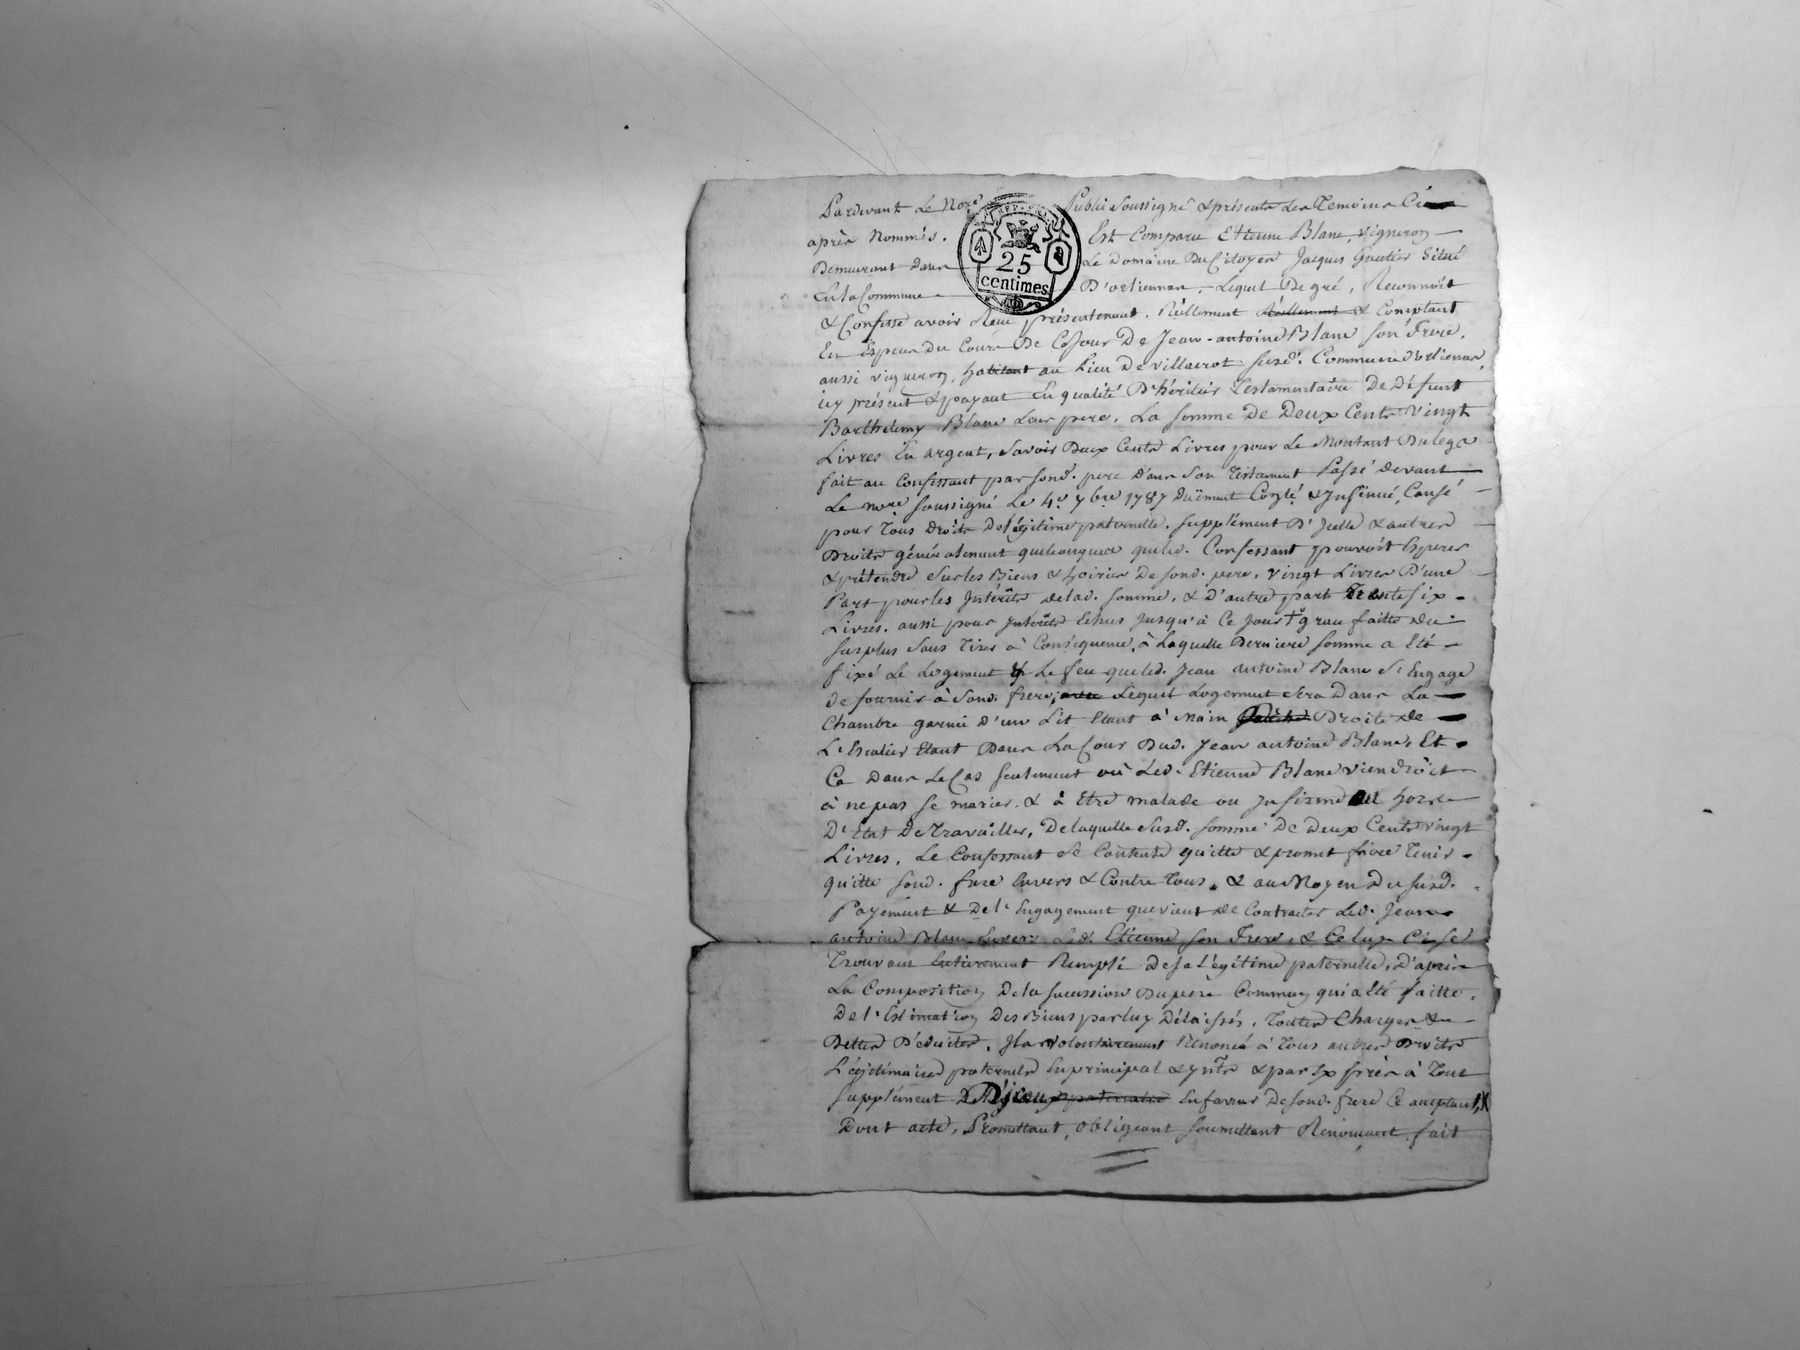 Pardevant Le Nore Public Soussigné & présents Les Temoins Ci
après Nommés. Est Comparu Etienne Blanc, vigneron
REP. FRA.
25
centimes
Demeurant dans Le Domaine Du Citoyen Jacques Gautier Situé
En la Commune D'orliennas, Lequel De gré, Reconnoit
& Confesse avoir Reçu présentement, Réellement Réellement & Comptant
En Espèces du Cours De Ce Jour De Jean-antoine Blanc son Frere,
aussi vigneron, habitant au Lieu De Villacrot susd. Commune d'orliennas,
icy présent & payant En qualité D'héritier Testamentaire De défunt
Barthelemy Blanc Leur pere, La somme De Deux Cents vingt
Livres En argent, Savoir Deux Cents Livres pour Le Montant Du legs
fait au Confessant par sond. pere dans Son Testament Passé devant
Le nore soussigné Le 4e. 7bre 1787 Düement Conglé & Insinué, Causé
pour Tous Droits De Légitime paternelle, supplément D'Icelle & autres
Droits généralement quelconques que led. Confessant pouvoit Esperer
& prétendre Sur les Biens & hoirie De sond. pere, vingt Livres D'une
Part pour les Intérêts de lad. somme, & D'autre part Trente six
Livres, aussi pour Intérêts Echus Jusqu'à Ce Jour + grace faitte du
surplus Sans Tirer à Conséquence, à Laquelle Derniere somme a Eté
fixé Le Logement & Le feu que led. Jean antoine Blanc S'Engage
de fournir à Sond. frere, Lequel Logement Sera Dans La
Chambre garnie d'un Lit Etant à Main gauche Droite de
L'Escalier Etant Dans La Cour Dud. Jean antoine Blanc, Et
Ce Dans Le Cas seulement où Led. Etienne Blanc viendroit
à ne pas se marier, & à Etre malade ou Infirme hors
D'Etat De Travailler, De laquelle Susd. somme De Deux Cents vingt
Livres, Le Confessant Se Contente quitte & promet faire Tenir
quitte sond. frere Envers & Contre Tous, & au Moyen Du susd.
Payement & De l'Engagement que vient de Contracter Led. Jean
antoine Blanc Envers Led. Etienne son Frere, & Celuy Ci se
Trouvant Entierement Rempli De sa Légitime paternelle, D'après
La Composition De la succession Du pere Commun qui a Eté faitte,
De l'Estimation Des Biens par luy Délaissés, Toutes Charges &
Dettes Déduites, Il a volontairement Renoncé à Tous autres Droits
Légitimaires paternels En principal & ynts & par Exprès à Tout
supplément D'iceux paternelle En faveur De sond. frere Ce acceptant, X
Dont acte, Promettant, obligeant soumettant Renonçant, fait